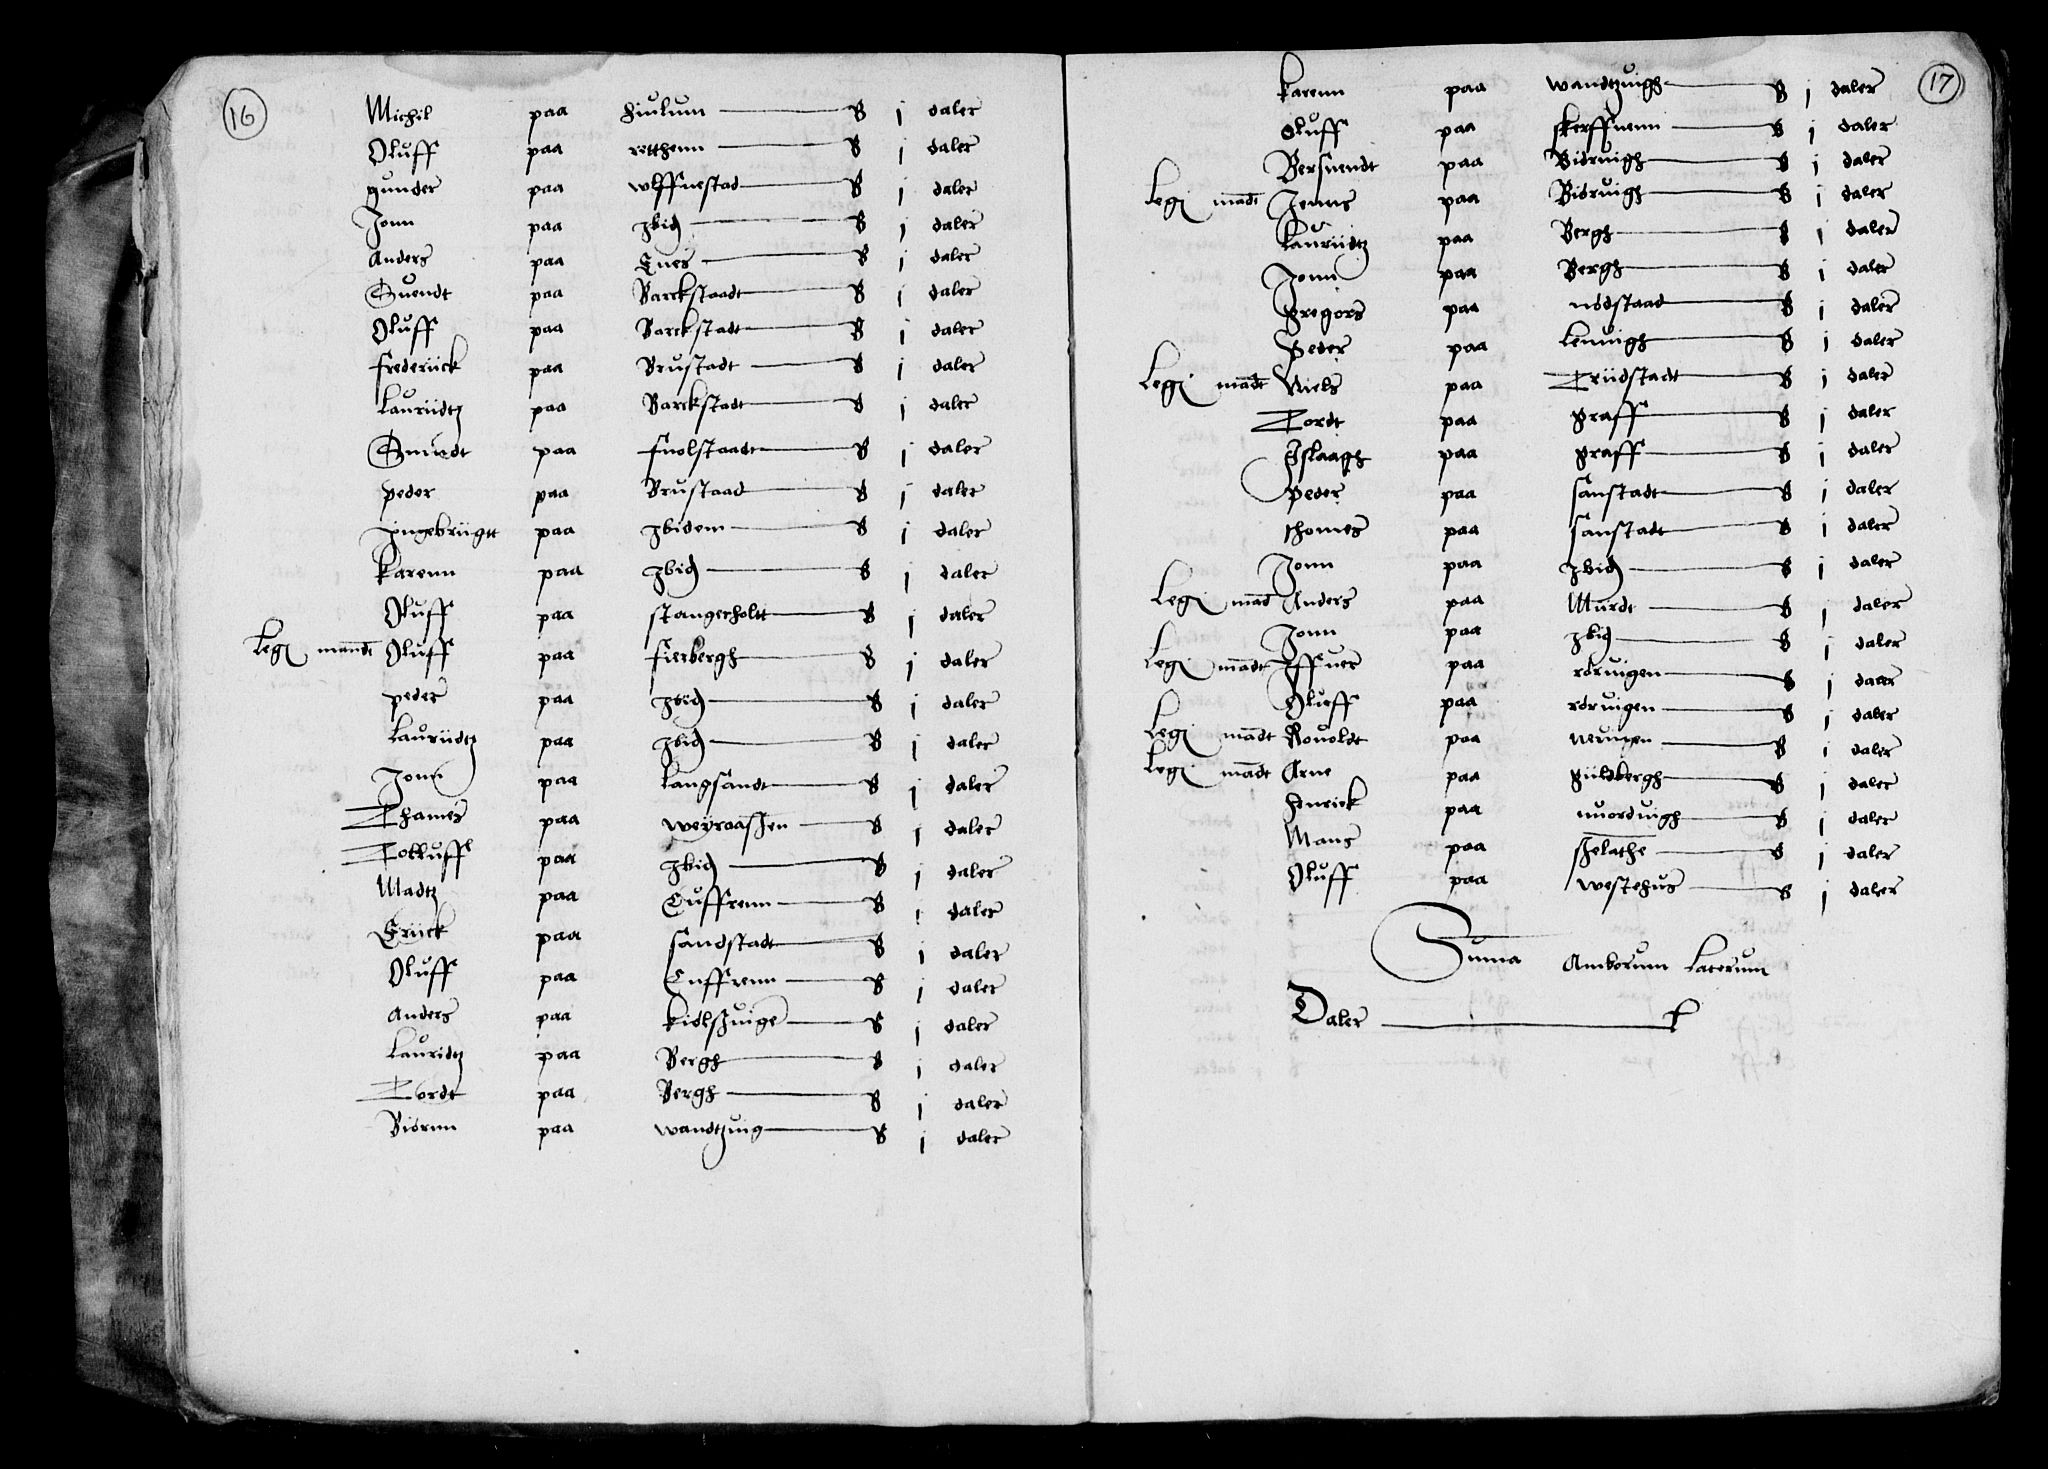 16
Michil paa hiulum ß j daler
Oluff paa retthenn ß j daler
gunder paa wlffuestad ß j daler
Jonn paa Jbid ß j daler
Anders paa Enes ß j daler
Suendt paa Barckstaadt ß j daler
Oluff paa Barckstadt ß j daler
frederiick paa Brustadt ß j daler
Lauriidtz paa Barckstadt ß j daler
Smundt paa fuolstaadt ß j daler
peder paa Brustaad ß j daler
Jngebriigtt paa Jbidem ß j daler
Karenn paa Jbid ß j daler
Oluff paa stangerholtt ß j daler
Legi mandt Oluff paa fierbergh ß j daler
peder paa Jbid ß j daler
Lauriidtz paa Jbid ß j daler
Jonn paa Langsandt ß j daler
Thames paa weyraassen ß j daler
Tolluff paa Jbid ß j daler
Madtz paa Cuffrenn ß j daler
Eriick paa sandstadt ß j daler
Oluff paa Cuffrenn ß j daler
Anders paa kiölszuige ß j daler
Lauridtz paa Bergh ß j daler
Tordt paa Bergh ß j daler
Biörnn paa wandtzuig ß j daler
17
Karenn paa wandtzuigh ß j daler
Oluff paa skerffuenn ß j daler
Bersuendt paa Biöruigh ß j daler
Legi madt Jenns paa Biöruigh ß j daler
Lauriidtz paa Bergh ß j daler
Jonn paa Bergh ß j daler
Gregors paa nödstaad ß j daler
Peder paa Lenuigh ß j daler
Legi madt Niels paa Triidstadt ß j daler
Tordt paa graff ß j daler
Jslaagh paa graff ß j daler
Peder paa sanstadt ß j daler
thomes paa sanstadt ß j daler
Jonn paa Jbid ß j daler
Legi mad Anders paa Murdt ß j daler
Jonn paa Jbid ß j daler
Legi madt Jffuer paa röruigen ß j daler
Oluff paa röruigen ß j daler
Legi madt Rouoldt paa neruigen ß j daler
Legi madt Arne paa giildbergh ß j daler
henrick paa nuorduigh ß j daler
Mans paa skelathe ß j daler
Oluff paa westehus ß j daler
Suma Amborum Laterum
Daler L